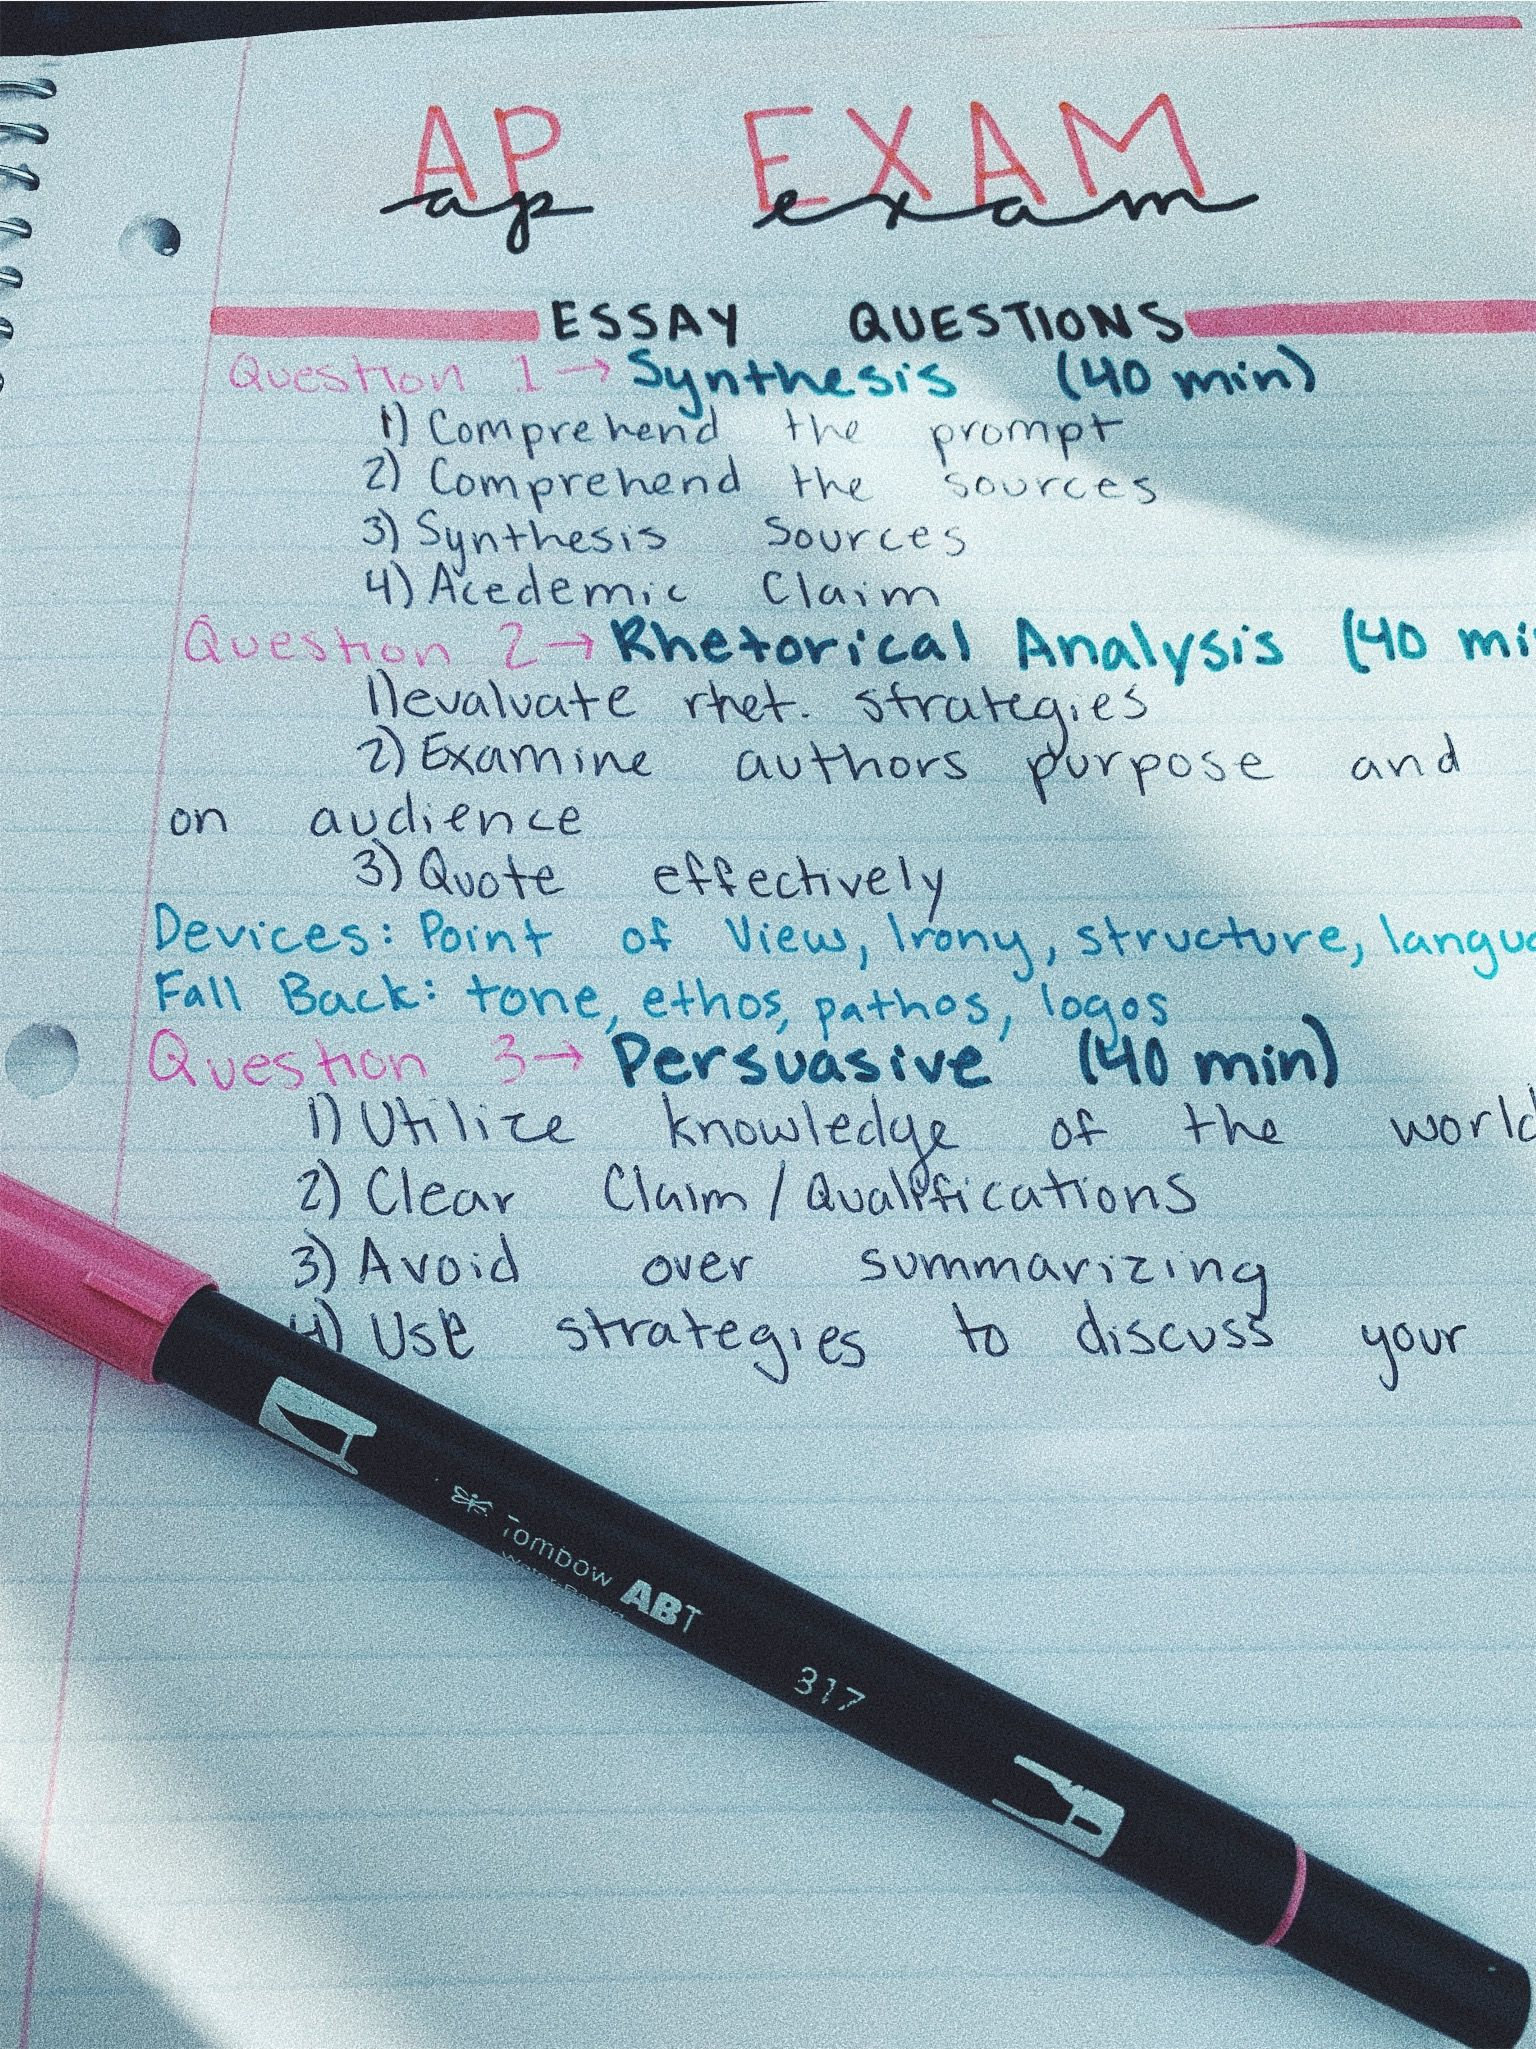 AP EXAM
ap exam
ESSAY QUESTIONS
Question 1 → Synthesis (40 min)
1) Comprehend the prompt
2) Comprehend the sources
3) Synthesis Sources
4) Acedemic Claim
Question 2 → Rhetorical Analysis (40 mi
1) evaluate rhet. strategies
2) Examine authors purpose and
on audience
3) Quote effectively
Devices: Point of View, Irony, structure, langua
Fall Back: tone, ethos, pathos, logos
Question 3 → Persuasive (40 min)
1) Utilize knowledge of the world
2) Clear Claim / Qualifications
3) Avoid over summarizing
4) Use strategies to discuss your
Tombow ABT
Water-Based
317